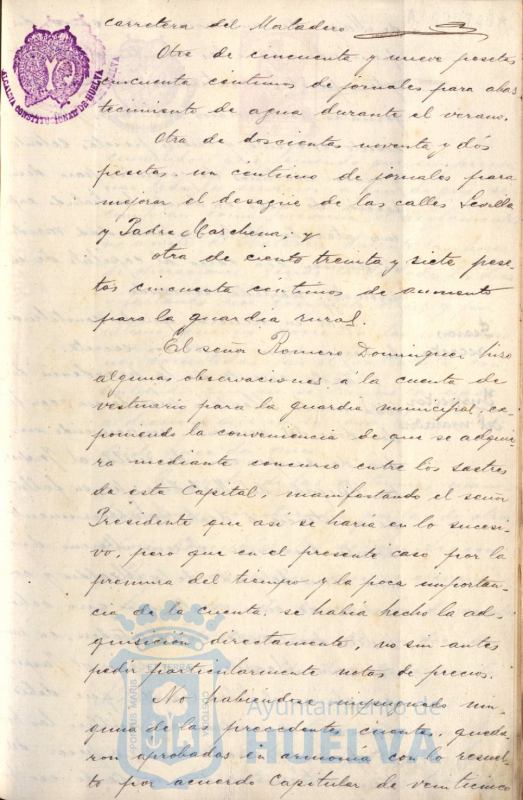 carretera del Matadero
Otra de cincuenta y nueve pesetas
cincuenta céntimos de jornales para abas
tecimiento de agua durante el verano.
Otra de doscientas noventa y dós
pesetas un céntimo de jornales para
mejorar el desagüe de las calles Sevilla
y Padre Marchena; y
otra de ciento treinta y siete pese-
tas cincuenta céntimos de aumento
para la guardia rural.
El señor Romero Dominguez hizo
algunas observaciones á la cuenta de
vestuario para la guardia municipal, ex
poniendo la conveniencia de que se adqui-
ra mediante concurso entre los sastres
de esta Capital, manifestando el señor
Presidente que así se haría en lo sucesi-
vo, pero que en el presente caso por la
premura del tiempo y la poca importan-
cia de la cuenta, se había hecho la ad-
quisición directamente, no sin antes
pedir particularmente notas de precios.
No habiendo impugnado nin-
guna de las precedentes cuentas, queda-
ron aprobadas en armonía con lo resuel-
to por acuerdo Capitular de veinticinco
ALCALDIA CONSTITUCIONAL DE HUELVA
PORTUS MARIS ET TERRAE CUSTODIA
Ayuntamiento de
HUELVA